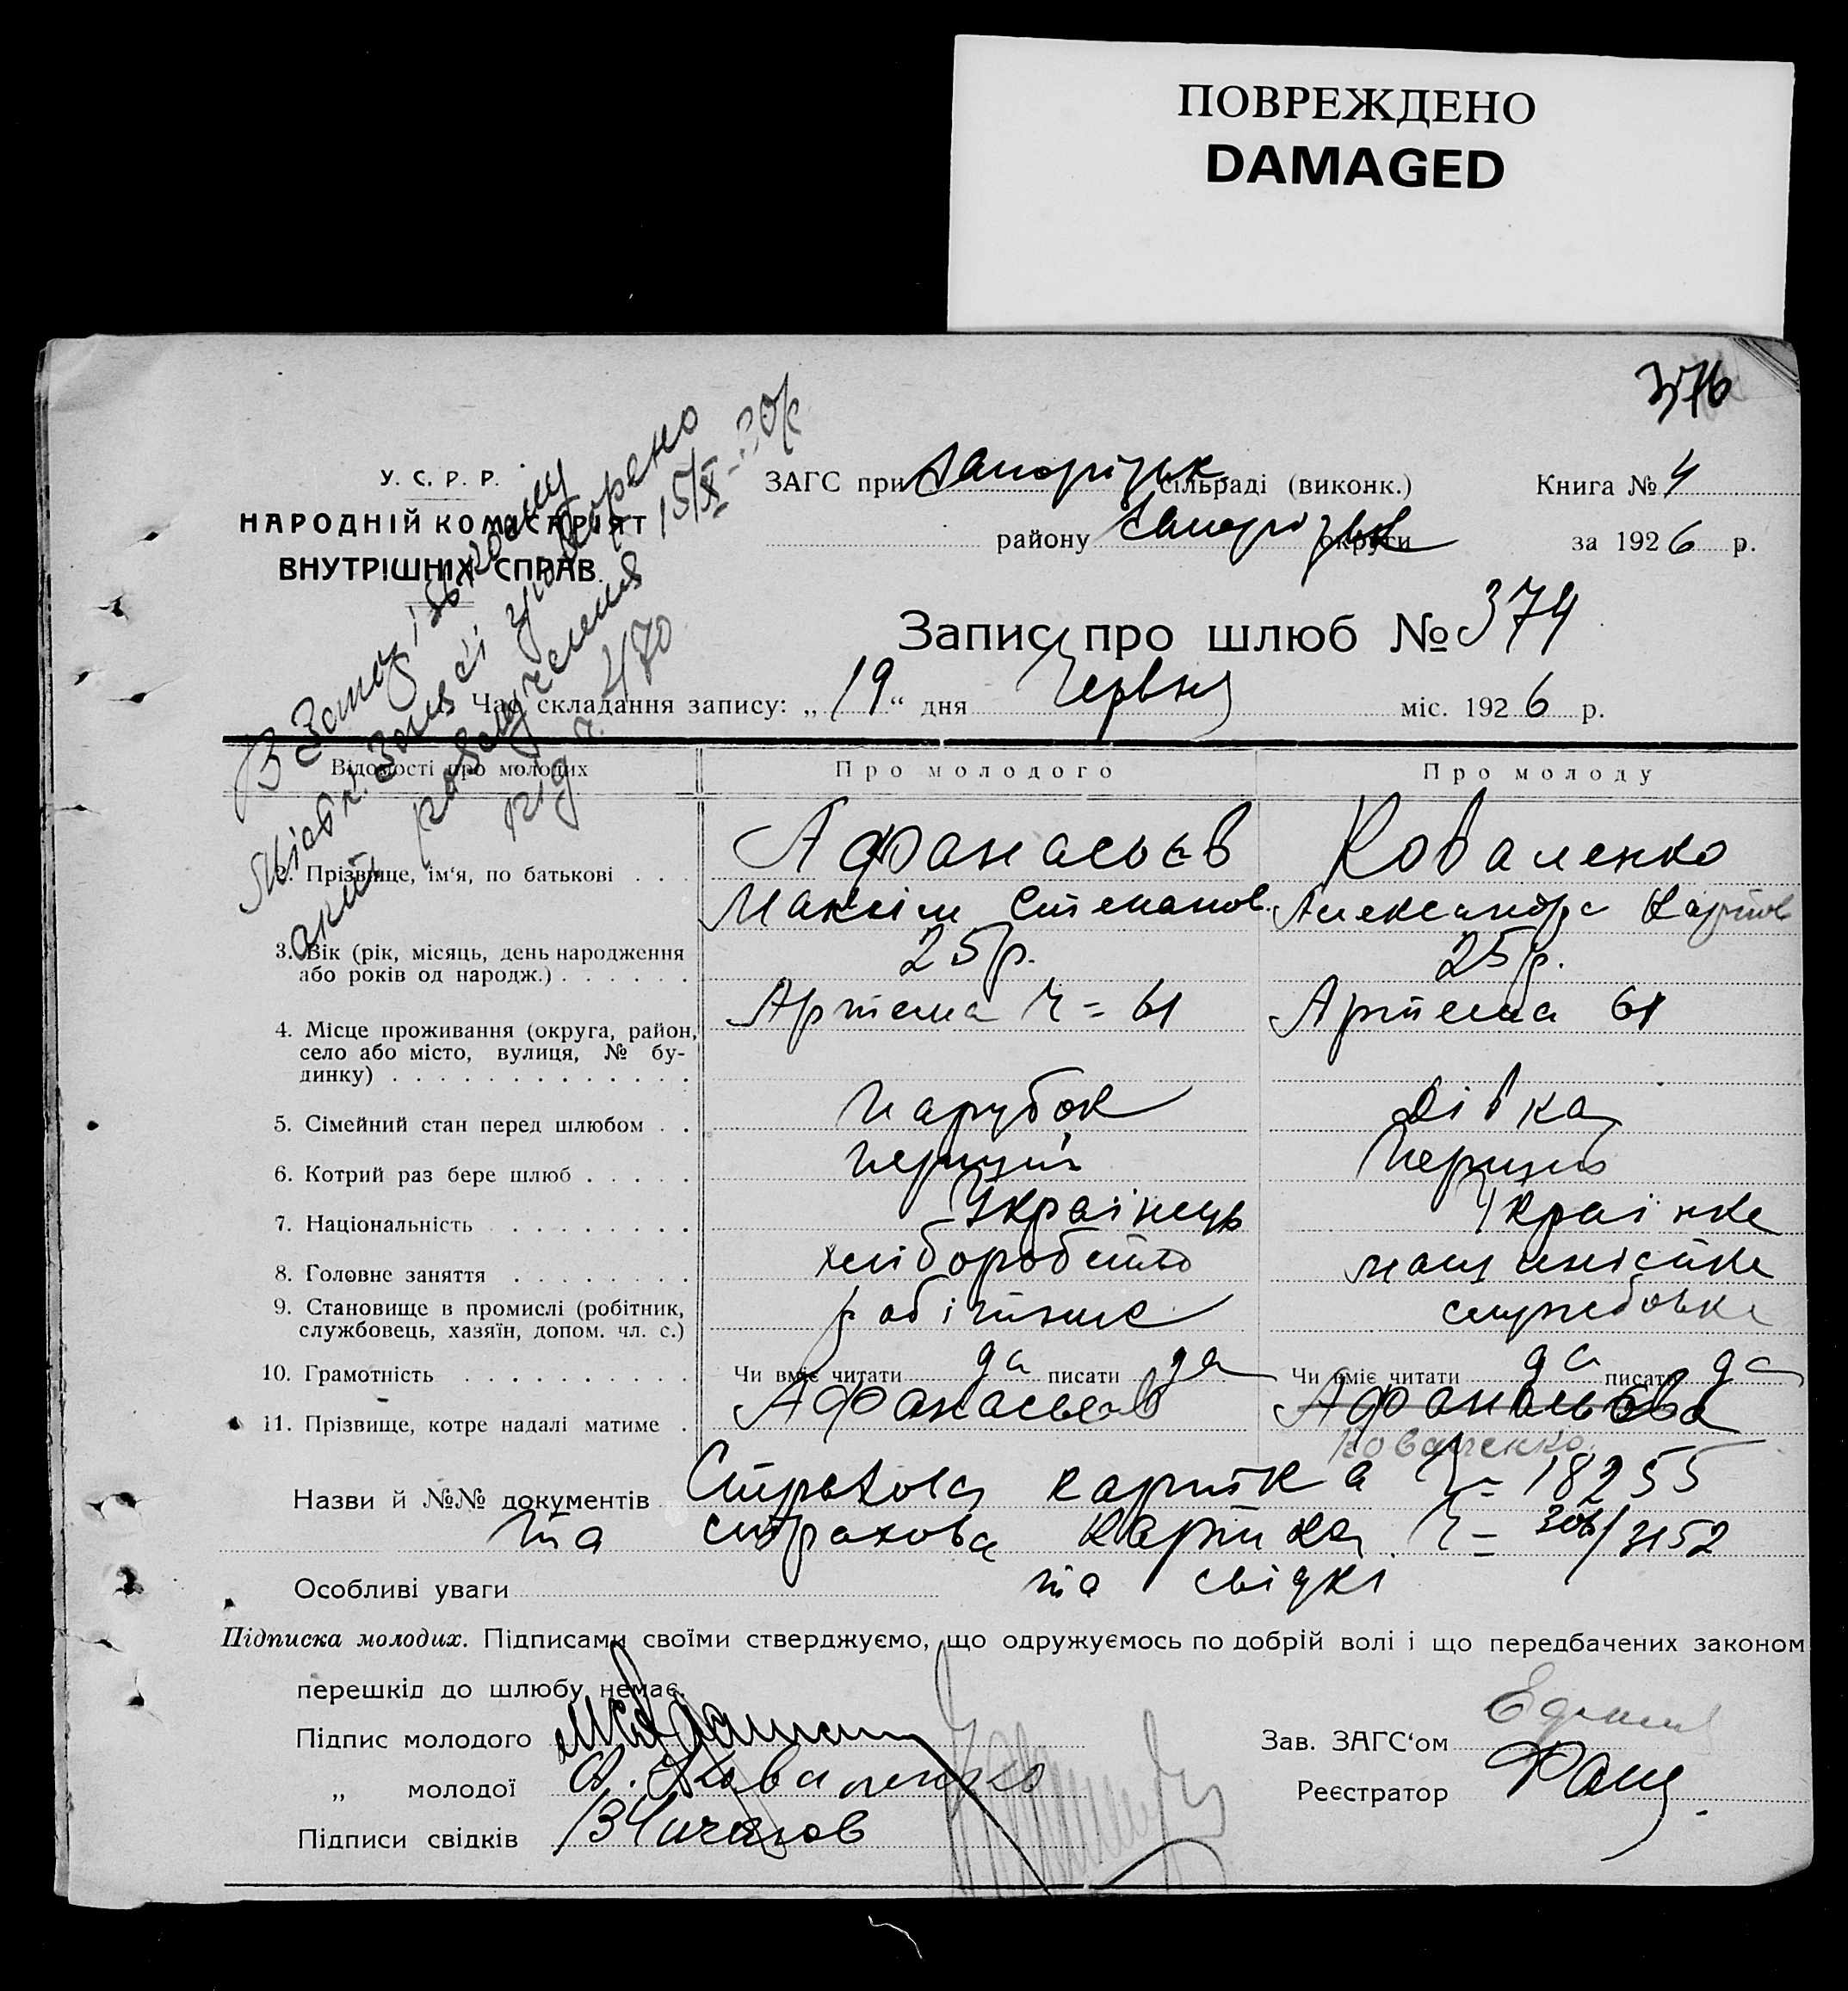 ПОВРЕЖДЕНО
DAMAGED
376
У. С. Р. Р.
НАРОДНІЙ КОМІСАРІЯТ
ВНУТРІШНІХ СПРАВ.
ЗАГС при Запоріжськ сільраді (виконк.)
Книга № 4
району Запоріжськ округи
за 1926 р.
Запис про шлюб № 374
Час складання запису: „19“ дня Червня міс. 1926 р.
В Запоріжському
Міськ. Загсі утворено
акт розлучення 15/X-30р
під ч. 470
Відомості про молодих
Про молодого
Про молоду
2. Прізвище, ім‘я, по батькові . . .
Афанасьєв
Максім Степанов.
Коваленко
Александра Карпов
3. Вік (рік, місяць, день народження
або років од народж.) . . . . . .
25 р.
25 р.
4. Місце проживання (округа, район,
село або місто, вулиця, № бу-
динку) . . . . . . . . . . . . .
Артема ч = 61
Артема 61
5. Сімейний стан перед шлюбом . .
Парубок
Дівка
6. Котрий раз бере шлюб . . . . .
Перший
Перший
7. Національність . . . . . . . .
Українець
Українка
8. Головне заняття . . . . . . . .
хліборобство
машиністка
9. Становище в промислі (робітник,
службовець, хазяїн, допом. чл. с.)
робітник
службовка
10. Грамотність . . . . . . . . . .
Чи вміє читати да писати да
Чи вміє читати да писати да
11. Прізвище, котре надалі матиме .
Афанасьєв
Афанасьєва
Коваленко
Назви й №№ документів Страхова картка Ч = 18255
та страхова картка Ч = 306/3152
Особливі уваги та свідкі
Підписка молодих. Підписами своїми стверджуємо, що одружуємось по добрій волі і що передбачених законом
перешкід до шлюбу немає.
Підпис молодого
Зав. ЗАГС‘ом
„ молодої А. Коваленко
Реєстратор
Підписи свідків